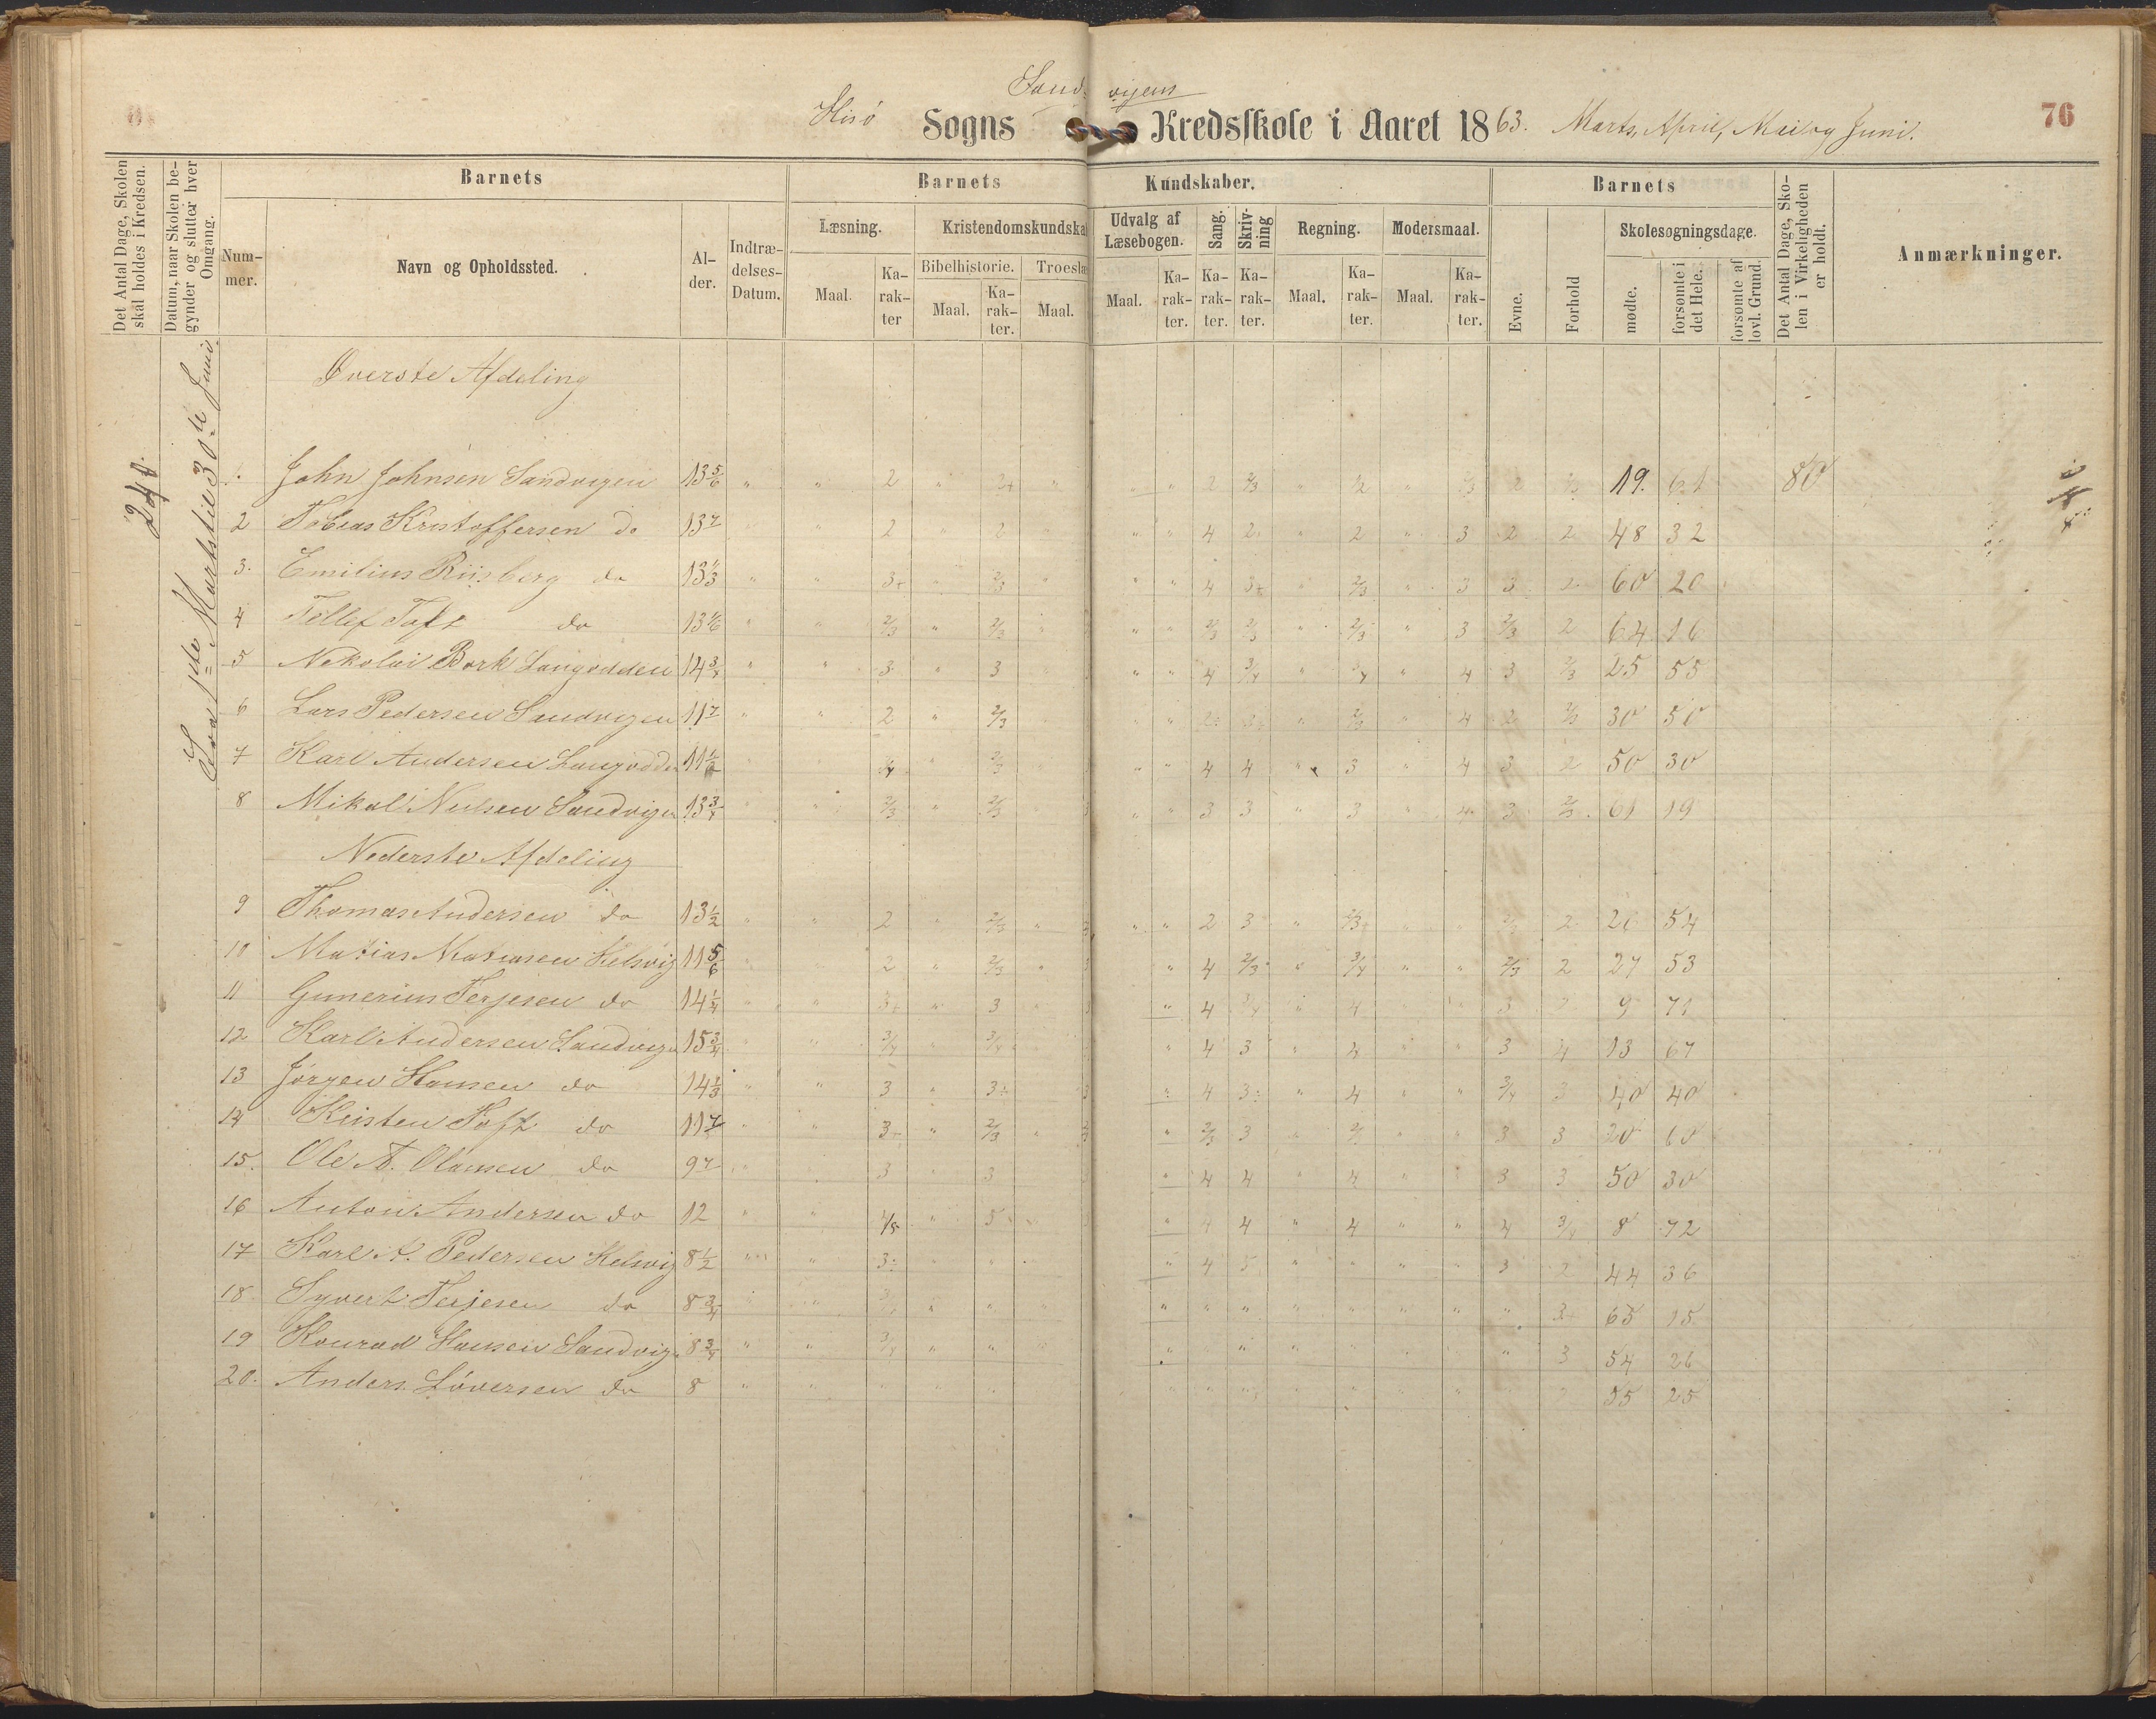 Sandvigens
Hisö Sogns Kredsskole i Aaret 1863. Marts, April, Mai og Juni. 76
Det Antal Dage, Skolen skal holdes i Kredsen.
Datum, naar Skolen begynder og slutter hver Omgang.
Barnets
Barnets Kundskaber.
Barnets
Det Antal Dage, Skolen i Virkeligheden er holdt.
Anmærkninger.
Nummer.
Navn og Opholdssted.
Alder.
Indtrædelses-Datum.
Læsning.
Kristendomskundska
Udvalg af Læsebogen.
Sang.
Skrivning
Regning.
Modersmaal.
Evne.
Forhold
Skolesøgningsdage.
Bibelhistorie.
Troeslæ
Maal. Karakter
Maal. Karakter.
Maal.
Maal. Karakter. Karakter. Karakter. Maal. Karakter. Maal. Karakter.
mødte.
forsømte i det Hele.
forsømte af lovl. Grund.
240.
Fra 1ste Marts til 30te Juni.
Øverste Afdeling
1. John Johnsen Sandvigen 13 5/6 " " 2 19. 61 80
2 Tobias Kristoffersen do 13 2 2 4 2 2 3 2 2 48 32
3. Emilius Riisberg do 13 1/3 3+ 2/3 4 3+ 2/3 3 3 2 60 20
4 Tellef Toft do 13 1/6 2/3 2/3 2/3 2/3 2/3 3 2/3 2 64 16
5 Nekolai Bork Langodden 14 3/4 3 3 4 3/4 3/4 4 3 2/3 25 55
6 Lars Pedersen Sandvigen 11 2 2/3 2/3 4 2 2/3 30 50
7 Karl Andersen Langodden 11 1/2 2/3 4 4 3 4 3 2 50 30
8 Mikal Nielsen Sandvigen 13 3/4 2/3 2/3 3 3 3 4 3 2/3 61 19
Nederste Afdeling
9 Thomas Andersen do 13 1/2 2 2/3 2 3 2 54
10 Matias Matiasen Helsvig 11 5/6 2 2/3 4 2/3 3/4 2/3 2 27 53
11 Gunerius Terjesen do 14 1/4 3+ 3 4 3/4 4 3 2 9 71
12 Karl Andersen Sandvigen 15 3/4 3/4 3/4 4 3 4 3 4 13 67
13 Jørgen Hansen do 14 1/3 3 3÷ 4 3÷ 4 3/4 3 40 40
14 Kristen Toft do 11 3+ 2/3 2/3 3 3 3 20 60
15. Ole A. Olausen do 9 3 3 4 4 4 3 3 50 30
16 Anton Andersen do 12 4/5 5 4 4 4 4 3/4 8 72
17 Karl A. Pedersen Helsvig 8 1/2 3÷ " 4 5 " " 3 2 44 36
18. Syvert Terjesen do 8 3/4 " " " " " 65 15
19 Konrad Hansen Sandvig. 8 3/4 3/4 " " " " 3 54 26
20. Anders Löversen do 8 " " " " 55 25